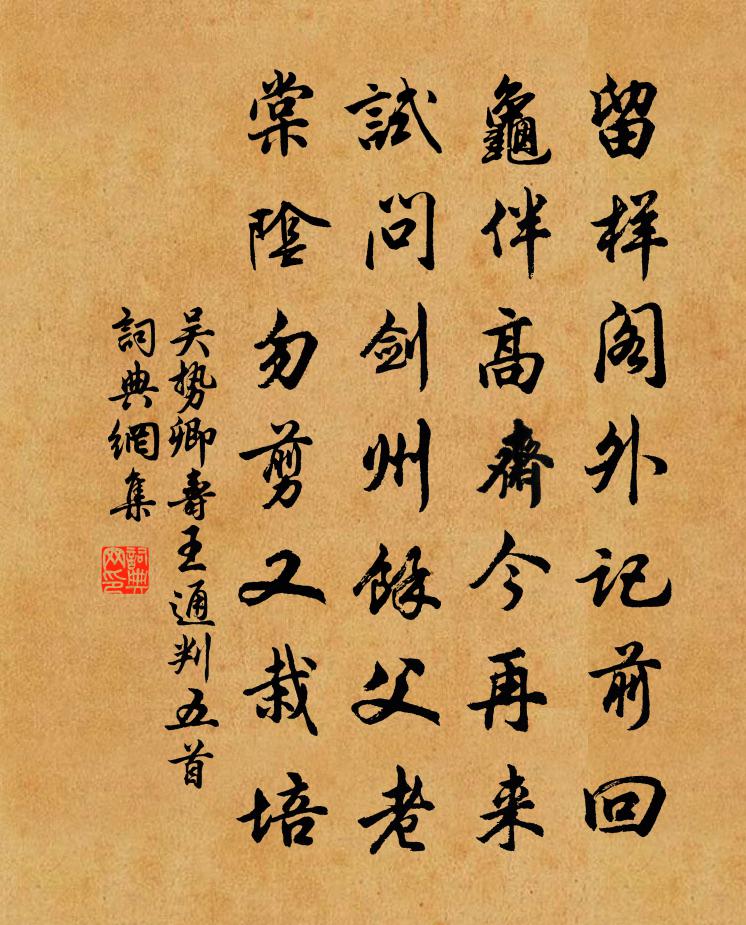 留样阁外记前回
龜伴高齋今再来
試问剑州餘父老
棠陰勿剪又栽培
吴势卿壽王通判五首
詞典網集
詞典網印